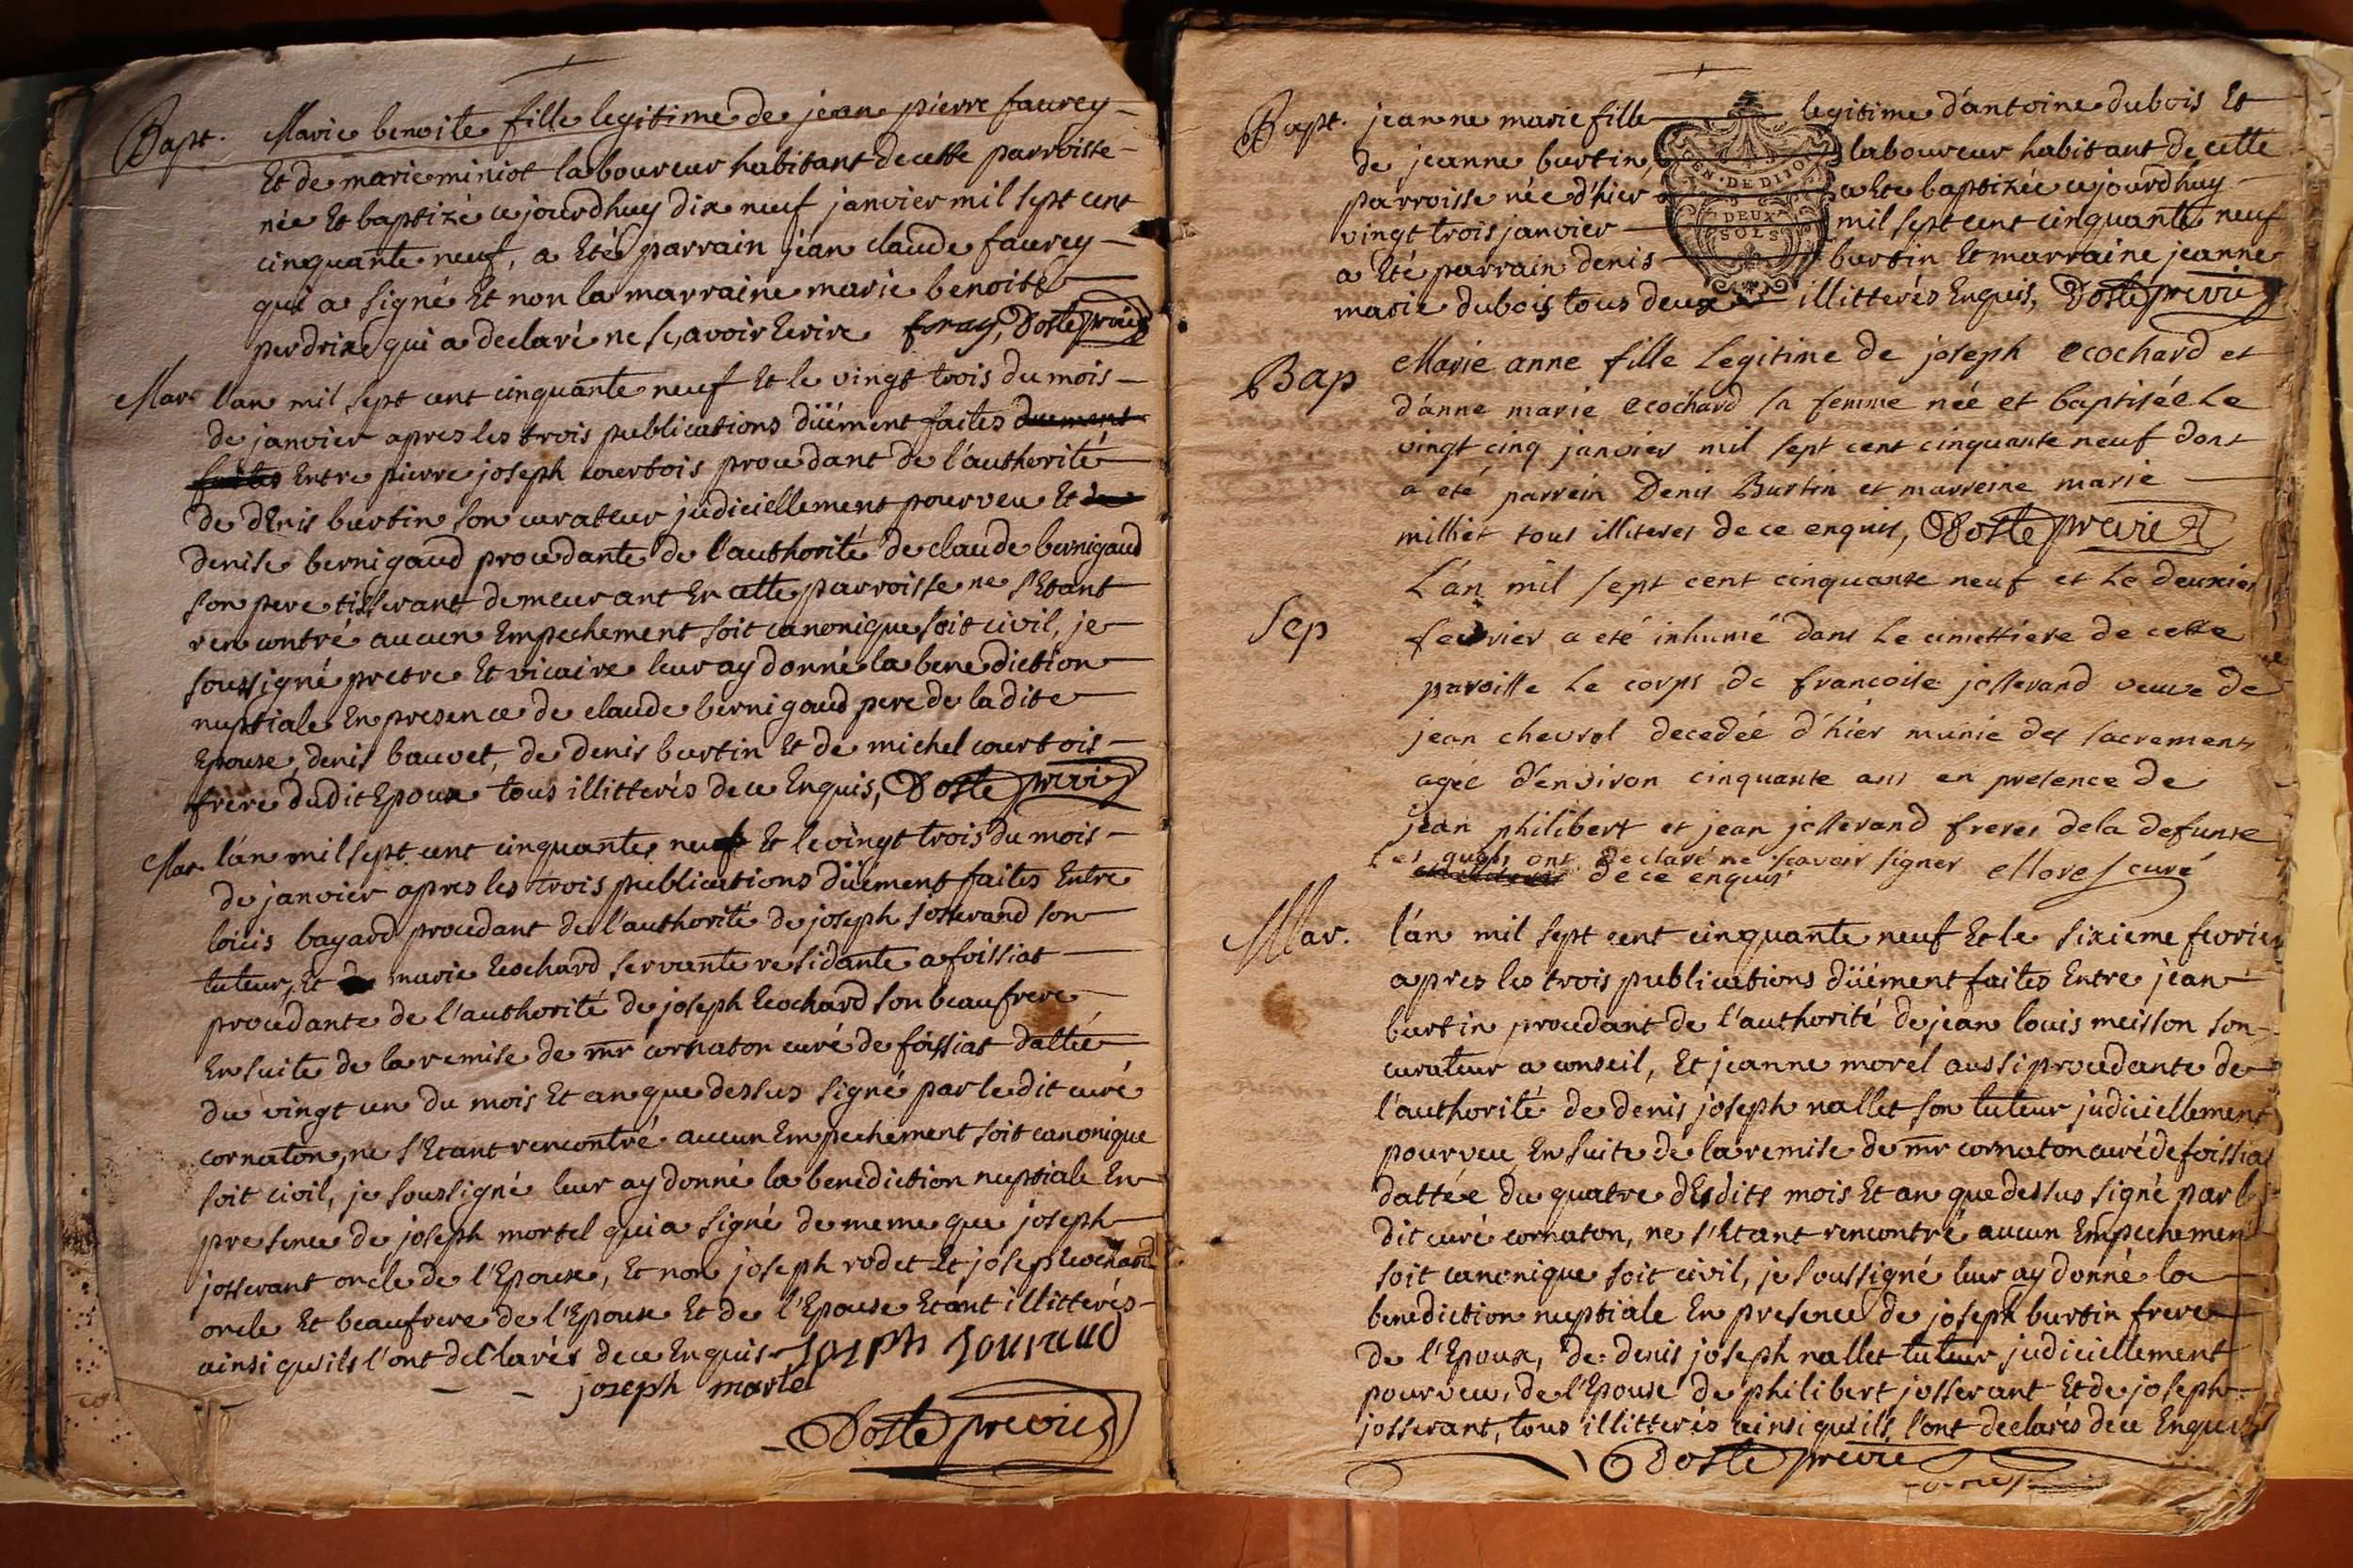 Bapt. Marie benoite fille legitime de jean pierre faurey
Et de marie miniot laboureur habitant de cette parroisse
née Et baptizée cejourdhuy dix neuf janvier mil sept cent
cinquante neuf, a Eté parrain jean claude faurey
qui a signé Et non la marraine marie benoite
perdrix qui a declaré ne sçavoir Ecrire foray, Doste previe
Mar. l'an mil sept cent cinquante neuf Et le vingt trois du mois
de janvier apres les trois publications düement faites duement
faites Entre pierre joseph courtois procedant de l'authorité
de dEnis burtin son curateur judiciellement pourveu Et de
denise bernigaud procedante de l'authorité de claude bernigaud
son pere tisserant demeurant En cette parroisse ne s'Etant
rencontré aucun Empechement soit canonique soit civil, je
soussigné pretre Et vicaire leur ay donné la benediction
nuptiale En presence de claude bernigaud pere de la dite
Epouse, denis bauvet, de denis burtin Et de michel courtois
frere du dit Epoux tous illitterés de ce Enquis, Doste previe
Mar. l'an mil sept cent cinquante neuf Et le vingt trois du mois
de janvier apres les trois publications düement faites Entre
loüis bayard procedant de l'authorité de joseph josserand son
tuteur, Et de marie Ecochard servante residante a foissiat
procedante de l'authorité de joseph Ecochard son beaufrere
Ensuite de la remise de mr cornaton curé de foissiat dattée
du vingt un du mois Et an que dessus signé par le dit curé
cornaton, ne s'Etant rencontré aucun Empechement soit canonique
soit civil, je soussigné leur ay donné la benediction nuptiale En
presence de joseph mortel qui a signé de meme que joseph
josserant oncle de l'Epoux, Et non joseph rodet Et joseph Ecochard
oncle Et beaufrere de l'Epoux Et de l'Epouse Etant illitterés
ainsi qu'ils l'ont declarés de ce Enquis Joseph Jousraud
joseph martel
Doste previe
Bapt. jeanne marie fille legitime d'antoine dubois Et
de jeanne burtin laboureur habitant de cette
parroisse née d'hier a Eté baptizée cejourdhuy
vingt trois janvier mil sept cent cinquante neuf
a Eté parrain denis burtin Et marraine jeanne
marie dubois tous deux illitterés Enquis, Doste previe
GEN. DE DIJON
DEUX
SOLS
Bap Marie anne fille legitime de joseph ecochard et
d'anne marie ecochard sa femme née et baptisée le
vingt cinq janvier mil sept cent cinquante neuf dont
a eté parrein Denis Burtin et marreine marie
milliet tous illiteres de ce enquis, Doste previe
L'an mil sept cent cinquante neuf et le deuxiem
Sep fevrier a eté inhumé dans le cimettiere de cette
paroisse le corps de francoise josserand veuve de
jean chevrol decedée d'hier munie des sacrements
agée d'environ cinquante ans en presence de
jean philibert et jean josserand freres dela defunte
Les quels ont declaré ne scavoir signer Mores curé
de ce enquis
Mar. l'an mil sept cent cinquante neuf Et le sixieme fevrier
apres les trois publications düement faites Entre jean
burtin procedant de l'authorité de jean louis meisson son
curateur a conseil, Et jeanne morel aussi procedante de
l'authorité de denis joseph nallet son tuteur judiciellement
pourveu, Ensuite de la remise de mr cornaton curé de foissiat
dattée du quatre dEsdits mois Et an que dessus signé par le
dit curé cornaton, ne s'Etant rencontré aucun Empechement
soit canonique soit civil, je soussigné leur ay donné la
benediction nuptiale En presence de joseph burtin frere
de l'Epoux, de denis joseph nallet tuteur judiciellement
pourveu, de l'Epouse de philibert josserant Et de joseph
josserant, tous illitterés ainsi qu'ils l'ont declarés de ce Enquis
Doste previe